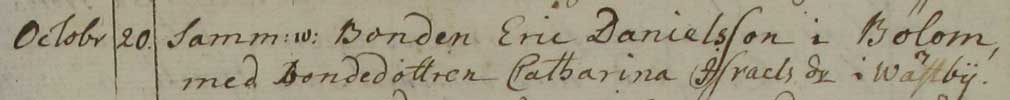 Octobr 20. Samm: w: Bonden Eric Danielsson i Bölom,
med Bondedottren Catharina Israels dr i Wästbÿ.